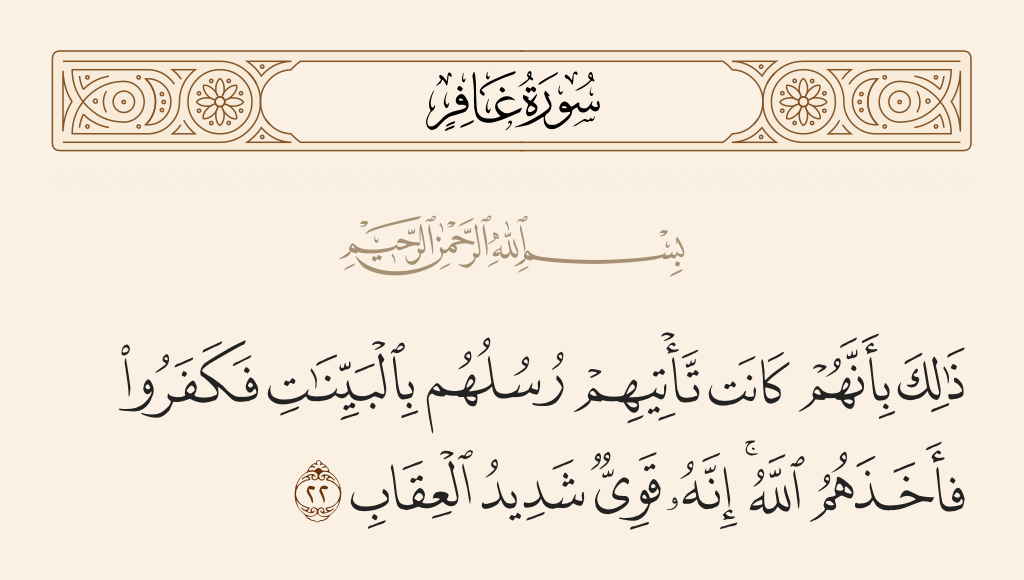 سُورَةُ غَافِرٍ
بِسْمِ ٱللَّهِ ٱلرَّحْمَٰنِ ٱلرَّحِيمِ
ذَٰلِكَ بِأَنَّهُمْ كَانَت تَّأْتِيهِمْ رُسُلُهُم بِٱلْبَيِّنَٰتِ فَكَفَرُوا۟
فَأَخَذَهُمُ ٱللَّهُ ۚ إِنَّهُۥ قَوِىٌّ شَدِيدُ ٱلْعِقَابِ ٢٢